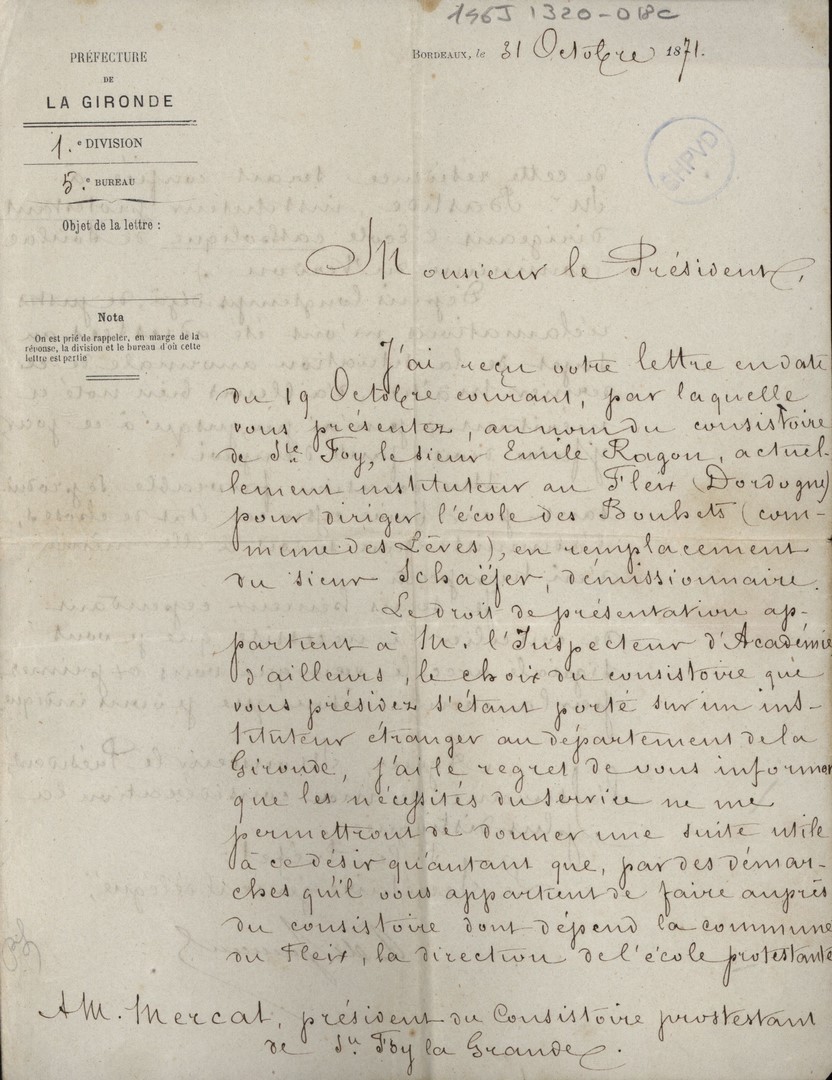 146J 1320-018C
PRÉFECTURE
DE
LA GIRONDE
1.e DIVISION
5.e BUREAU
Objet de la lettre :
Nota
On est prié de rappeler, en marge de la
réponse, la division et le bureau d'où cette
lettre est partie
BORDEAUX, le 31 Octobre 1871.
SHPVD
Monsieur le Président,
J'ai reçu votre lettre en date
du 19 Octobre courant, par laquelle
vous présentez, au nom du consistoire
de Ste Foy, le sieur Emile Ragon, actuel-
llement instituteur au Fleix (Dordogne)
pour diriger l'école des Bouhets (com-
mune des Lèves), en remplacement
du sieur Schaëfer, démissionnaire.
Le droit de présentation ap-
partient à M. l'Inspecteur d'Académie
d'ailleurs, le choix du consistoire que
vous présidez s'étant porté sur un ins-
tituteur étranger au département de la
Gironde, j'ai le regret de vous informer
que les nécessités du service ne me
permettront de donner une suite utile
à ce désir qu'autant que, par des démar-
ches qu'il vous appartient de faire auprès
du consistoire dont dépend la commune
du Fleix, la direction de l'école protestante
A M. Mercat, président du Consistoire prostestant
de Ste Foy la Grande.